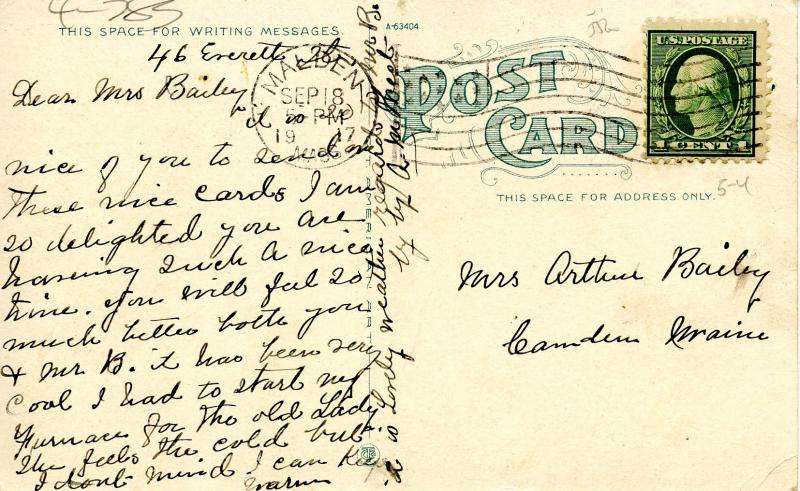 4-385
THIS SPACE FOR WRITING MESSAGES.
A-63404
46 Everett St
Dear Mrs Bailey
it is so
nice of you to send me
these nice cards I am
so delighted you are
having such a nice
time. you will feel so
much better both you
& Mr B. it has been very
cool I had to start my
Furnace for the old Lady
she feels the cold but
I dont mind I can keep
warm
it is Lovely weather regards to Mr B.
by by A
MALDEN
SEP 18
PM
1917
MASS
POST CARD
U.S. POSTAGE
1 CENT 1
THIS SPACE FOR ADDRESS ONLY.
5-4
Mrs Arthur Bailey
Camden Maine